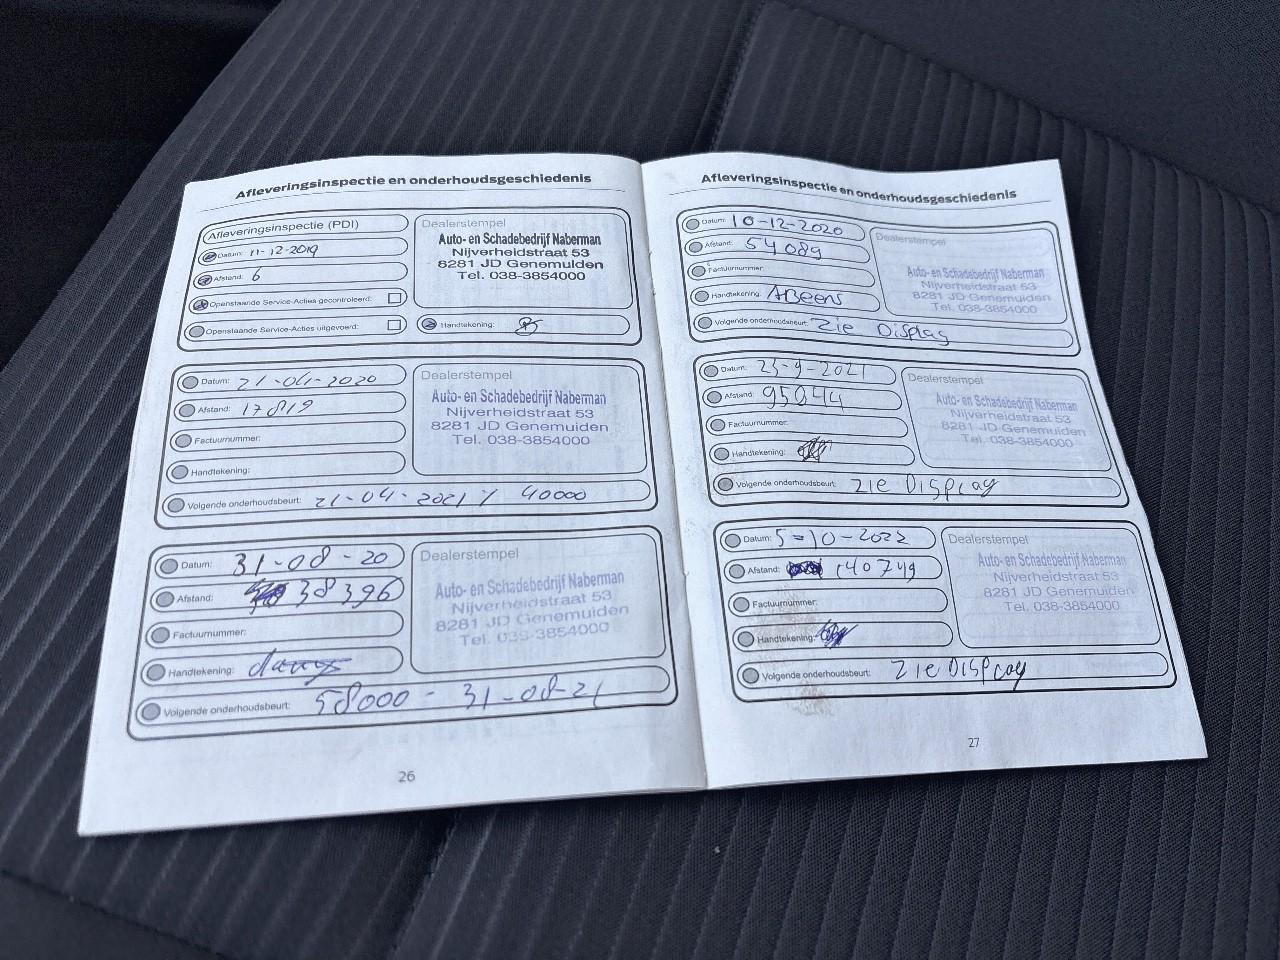 Afleveringsinspectie en onderhoudsgeschiedenis
Afleveringsinspectie (PDI)
Datum: 11-12-2019
Afstand: 6
Openstaande Service-Acties gecontroleerd:
Openstaande Service-Acties uitgevoerd:
Dealerstempel
Auto- en Schadebedrijf Naberman
Nijverheidstraat 53
8281 JD Genemuiden
Tel. 038-3854000
Handtekening:
Datum: 21-04-2020
Afstand: 17819
Factuurnummer:
Handtekening:
Volgende onderhoudsbeurt: 21-04-2021 / 40000
Dealerstempel
Auto- en Schadebedrijf Naberman
Nijverheidstraat 53
8281 JD Genemuiden
Tel. 038-3854000
Datum: 31-08-20
Afstand: 38396
Factuurnummer:
Handtekening:
Volgende onderhoudsbeurt: 58000 - 31-08-21
Dealerstempel
Auto- en Schadebedrijf Naberman
Nijverheidstraat 53
8281 JD Genemuiden
Tel. 038-3854000
26
Afleveringsinspectie en onderhoudsgeschiedenis
Datum: 10-12-2020
Afstand: 54089
Factuurnummer:
Handtekening: ABeens
Volgende onderhoudsbeurt: Zie Display
Dealerstempel
Auto- en Schadebedrijf Naberman
Nijverheidstraat 53
8281 JD Genemuiden
Tel. 038-3854000
Datum: 23-9-2021
Afstand: 95044
Factuurnummer:
Handtekening:
Volgende onderhoudsbeurt: Zie Display
Dealerstempel
Auto- en Schadebedrijf Naberman
Nijverheidstraat 53
8281 JD Genemuiden
Tel. 038-3854000
Datum: 5-10-2022
Afstand: 140749
Factuurnummer:
Handtekening:
Volgende onderhoudsbeurt: Zie Display
Dealerstempel
Auto- en Schadebedrijf Naberman
Nijverheidstraat 53
8281 JD Genemuiden
Tel. 038-3854000
27